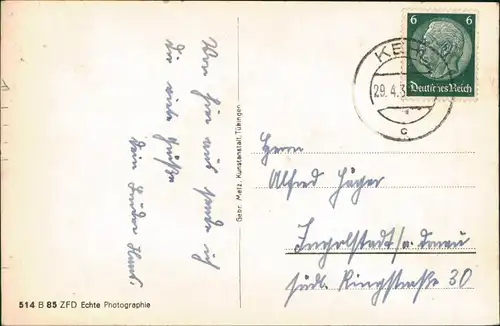 Von hier aus sende ich
die viele Grüße
Dein Bruder Kurt.
Gebr. Metz, Kunstanstalt, Tübingen
514 B 85 ZFD Echte Photographie
6 6
Deutsches Reich
KEHL
29.4.3
c
Herrn
Alfred Häger
Ingolstadt/a. Donau
südl. Ringstraße 30